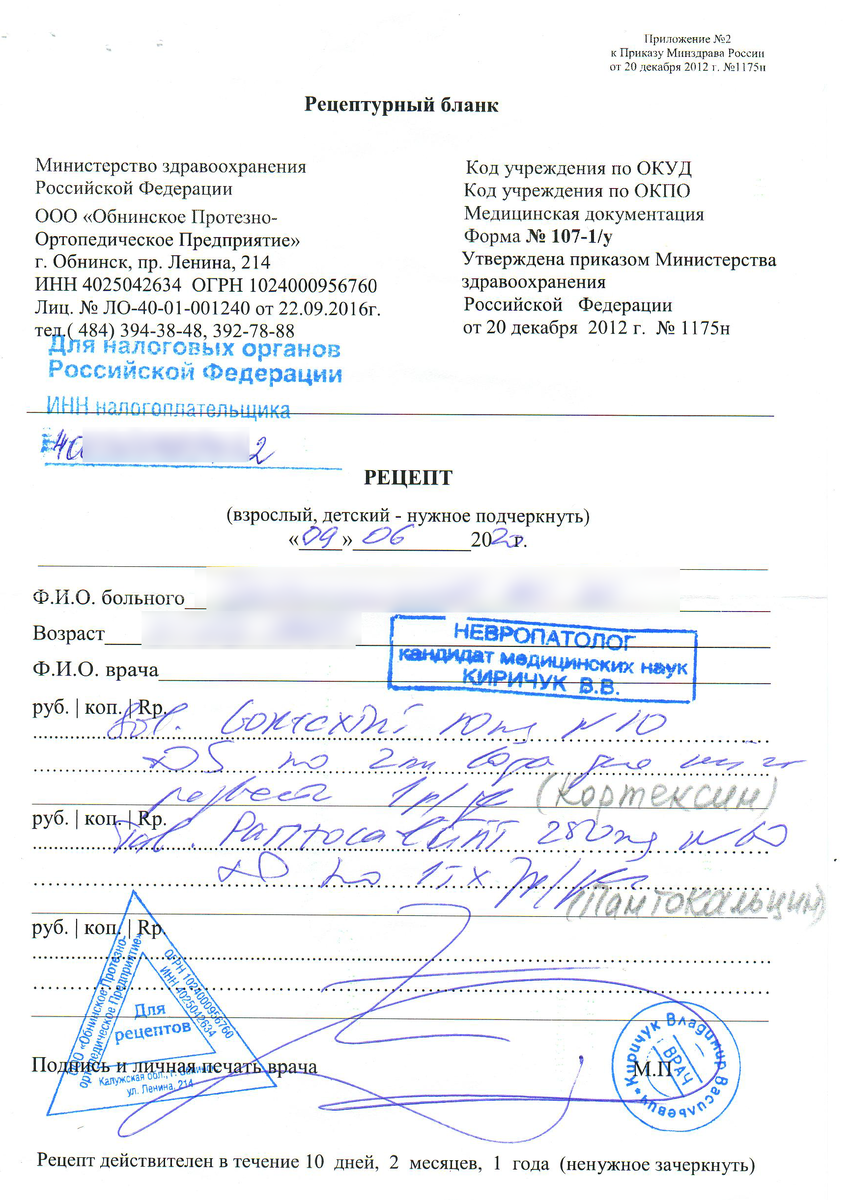 Приложение №2
к Приказу Минздрава России
от 20 декабря 2012 г. №1175н
Рецептурный бланк
Министерство здравоохранения
Российской Федерации
ООО «Обнинское Протезно-
Ортопедическое Предприятие»
г. Обнинск, пр. Ленина, 214
ИНН 4025042634 ОГРН 1024000956760
Лиц. № ЛО-40-01-001240 от 22.09.2016г.
тел.( 484) 394-38-48, 392-78-88
Код учреждения по ОКУД
Код учреждения по ОКПО
Медицинская документация
Форма № 107-1/у
Утверждена приказом Министерства
здравоохранения
Российской Федерации
от 20 декабря 2012 г. № 1175н
Для налоговых органов
Российской Федерации
ИНН налогоплательщика
40 2
РЕЦЕПТ
(взрослый, детский - нужное подчеркнуть)
«09» 06 2020г.
Ф.И.О. больного
Возраст
Ф.И.О. врача
НЕВРОПАТОЛОГ
кандидат медицинских наук
КИРИЧУК В.В.
руб. | коп. | Rp.
Sol. Cortexini 10mg N10
DS по 2мл
1р/д (Кортексин)
руб. | коп. | Rp.
Tab. Pantocalcini 250mg N
D по 1т х
(Пантокальцин)
руб. | коп. | Rp.
ООО «Обнинское Протезно-
ортопедическое Предприятие»
ОГРН 1024000956760
ИНН 4025042634
Для
рецептов
Калужская обл., г. Обнинск
ул. Ленина, 214
Подпись и личная печать врача
М.П.
Киричук Владимир Васильевич
ВРАЧ
Рецепт действителен в течение 10 дней, 2 месяцев, 1 года (ненужное зачеркнуть)